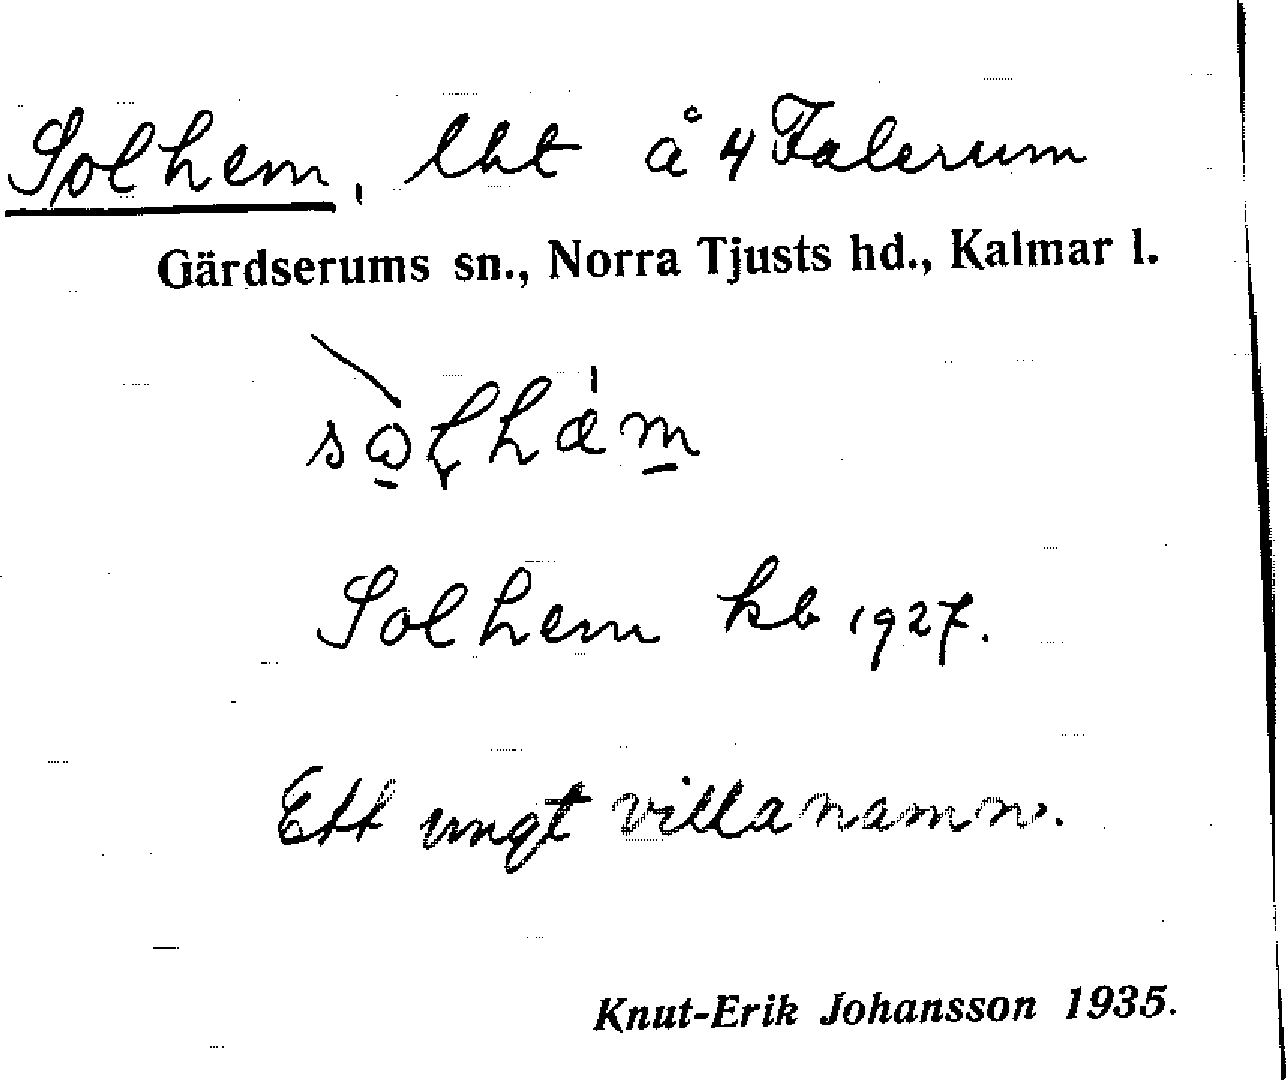 Solhem, lht å 4 Falerum
Gärdserums sn., Norra Tjusts hd., Kalmar l.
Solhem kb 1927.
Ett ungt villanamn.
Knut-Erik Johansson 1935.